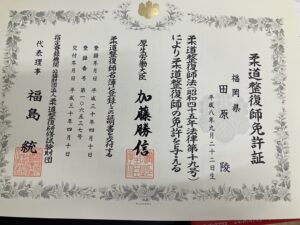 柔道整復師免許証
福岡県
田原 陵
平成八年九月二十二日生
柔道整復師法(昭和四十五年法律第十九号)
により柔道整復師の免許を与える
厚生労働大臣 加藤勝信
柔道整復師名簿に登録し本証明書を交付する
登録年月日 平成三十年四月十日
交付年月日 平成三十年四月十日
代表理事 福島 統